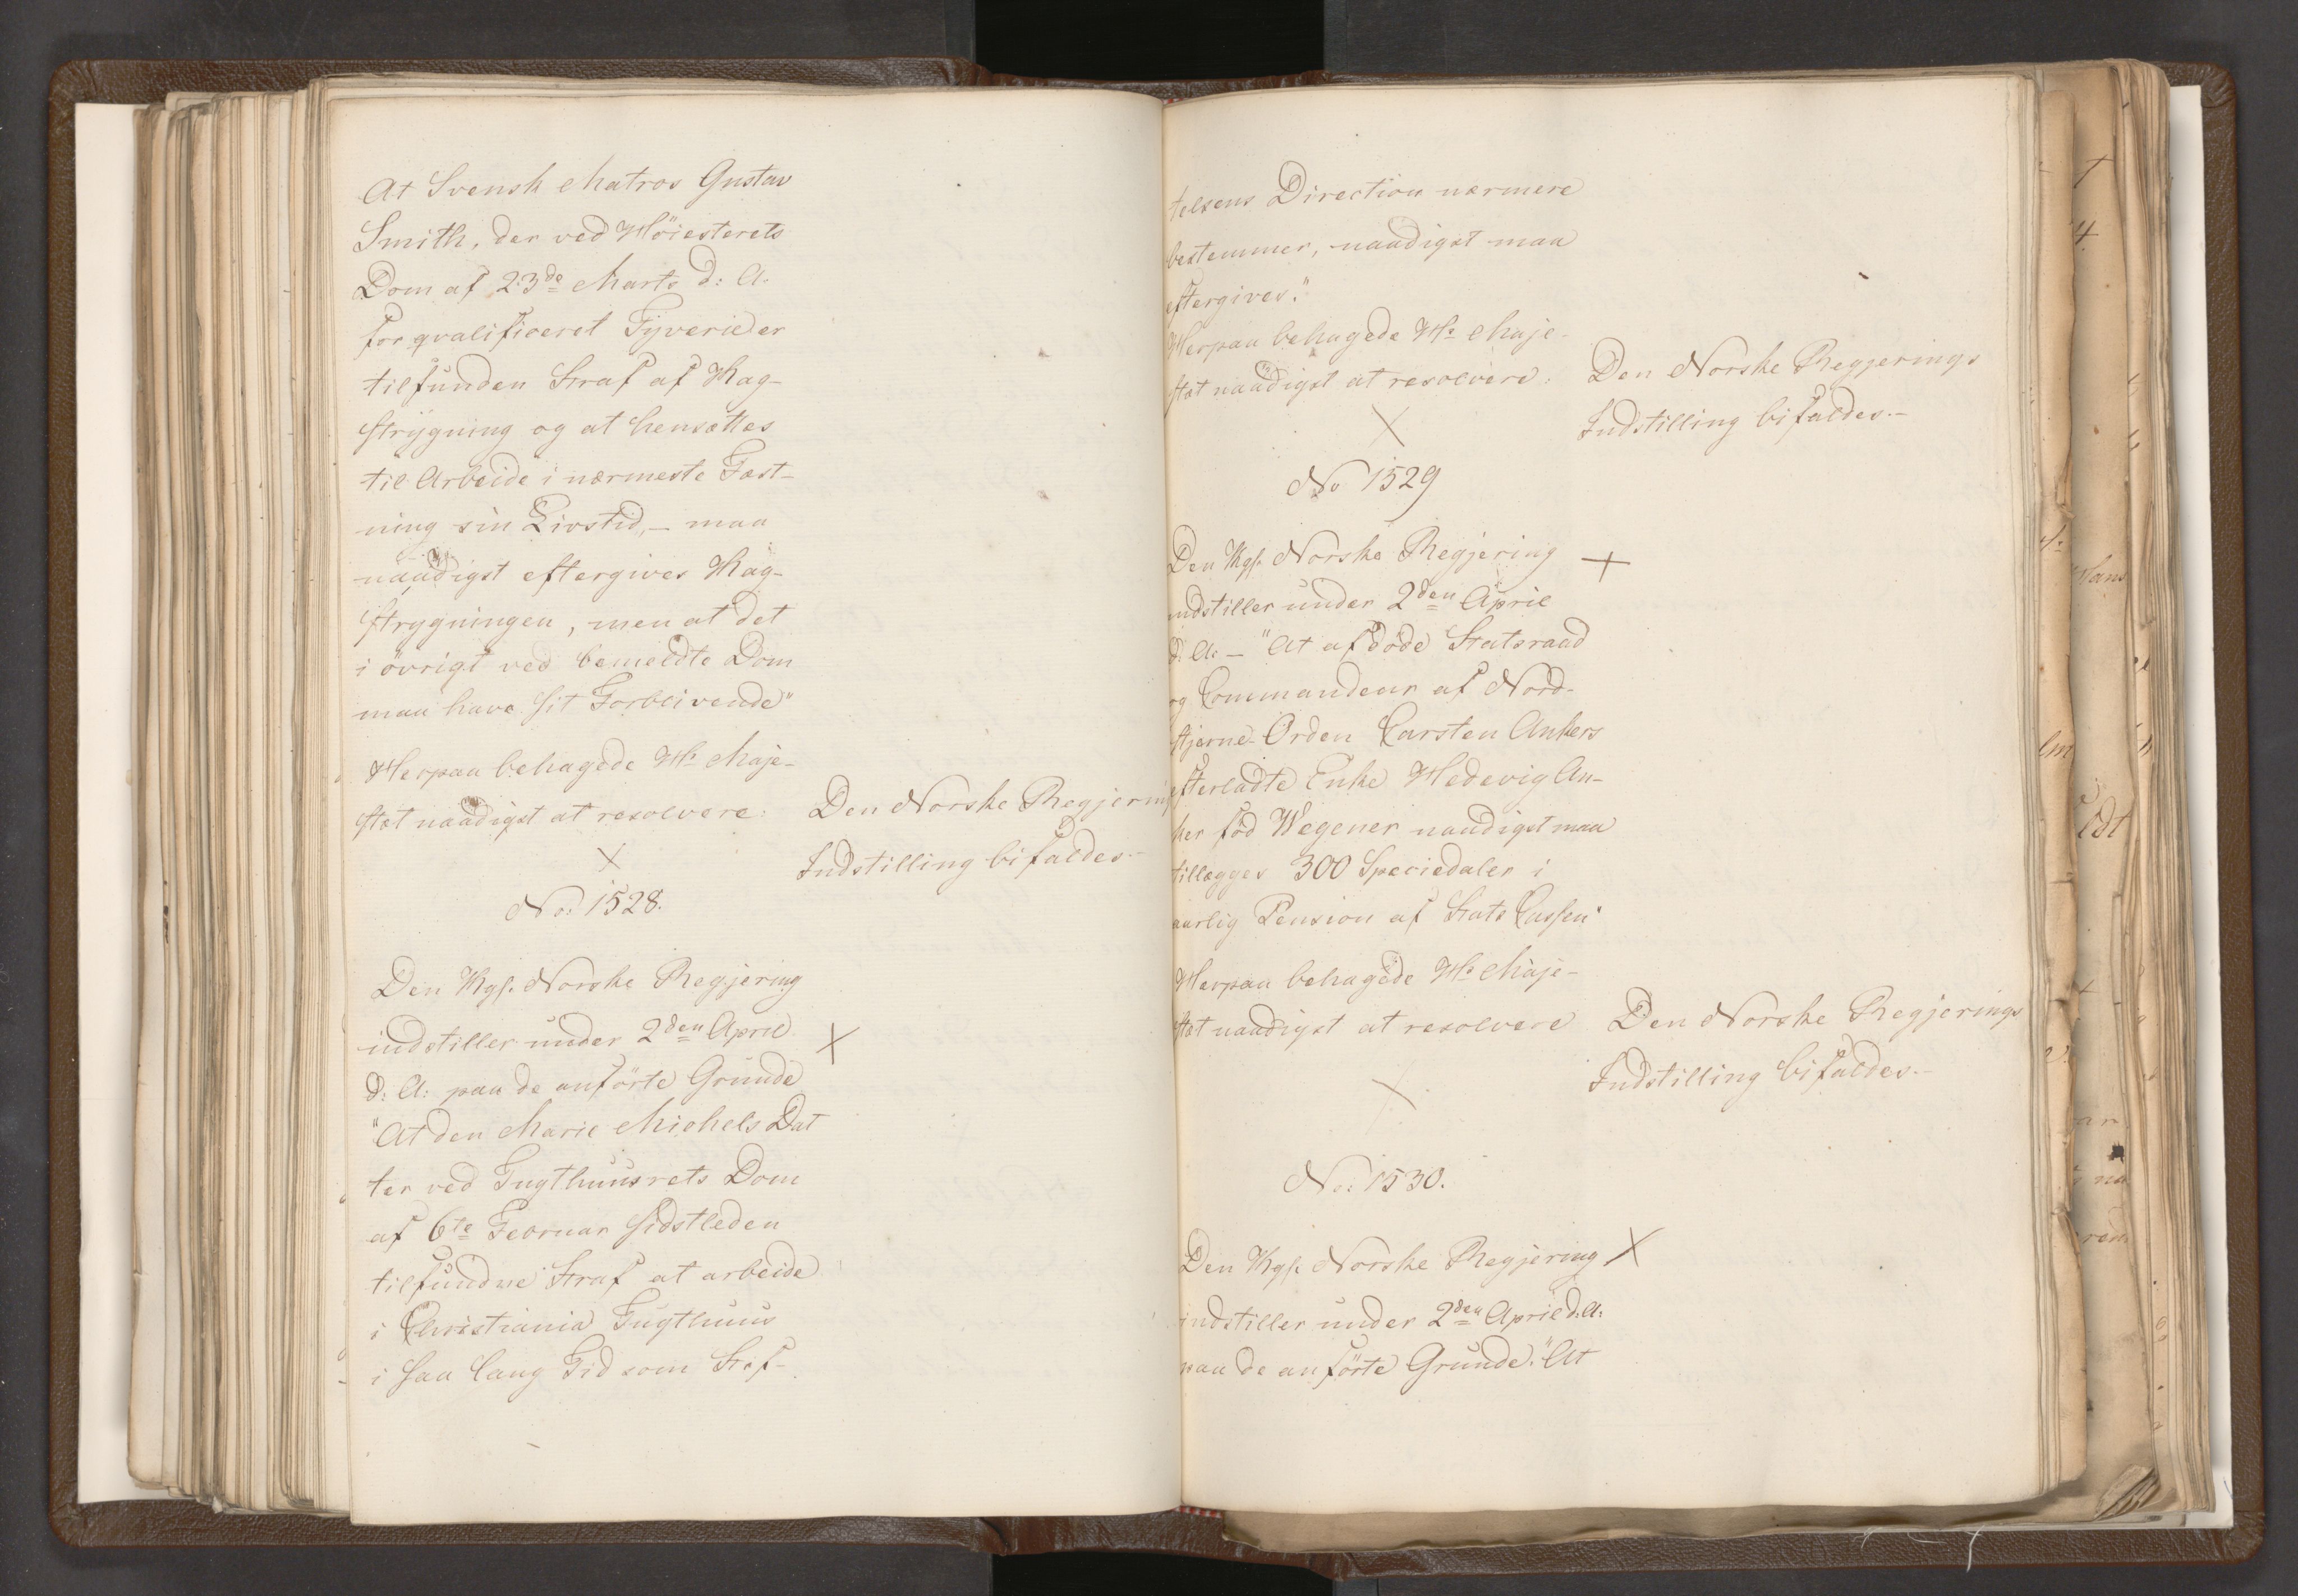 At Svensk Matros Gustav
Smith, der ved Höiesterets
Dom af 23de Marts d: A.
for qvalificeret Tyverie er
tilfunden Straf af Kag-
strygning og at hensættes
til Arbeide i nærmeste Fæst-
ning sin Livstid, – maa
naadigst eftergives Kag-
strygningen, men at det
i övrigt ved bemeldte Dom
maa have sit Forblivende"
Herpaa behagede Hs Maje-
stæt naadigst at resolvere:
Den Norske Regjerings
Indstilling bifaldes.–
No: 1528.
Den Kgl. Norske Regjering
indstiller under 2den April
d: A: paa de anförte Grunde
"At den Marie Michels Dat
ter ved Tugthuusrets Dom
af 6te Februar sidstleden
tilfundne Straf at arbeide
i Christiania Tugthuus
i saa lang Tid som Stif-
telsens Direction nærmere
bestemmer, naadigst maa
eftergives."
Herpaa behagede Hs Maje-
stæt naadigst at resolvere:
Den Norske Regjerings
Indstilling bifaldes.–
No 1529
Den Kgl. Norske Regjering
indstiller under 2den April
d: A: – "At afdöde Statsraad
og Commandeur af Nord-
stjerne-Orden Carsten Ankers
efterladte Enke Hedevig An-
ker föd Wegener naadigst maa
tillægges 300 Speciedaler i
aarlig Pension af Stats Cassen"
Herpaa behagede Hs Maje-
stæt naadigst at resolvere
Den Norske Regjerings
Indstilling bifaldes.–
No: 1530.
Den Kgl. Norske Regjering
indstiller under 2den April d: A:
paa de anförte Grunde: "At